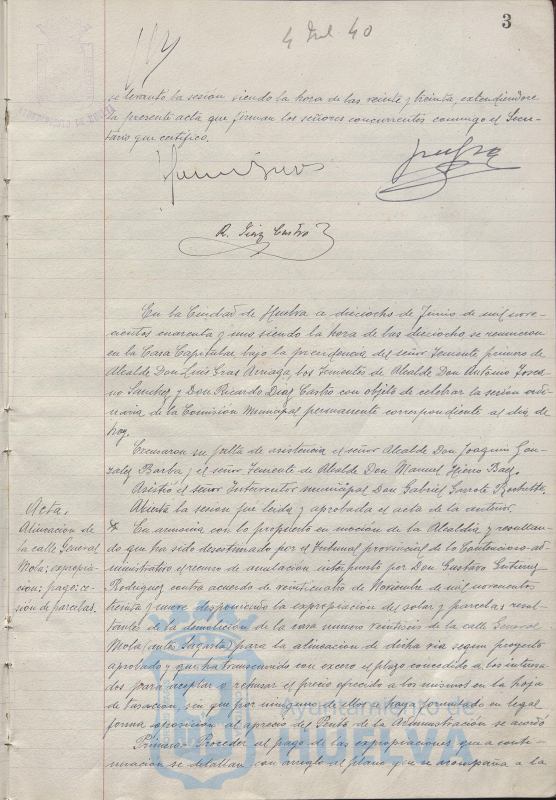 3
4 Jul 40
se levantó la sesión siendo la hora de las veinte y treinta, extendiendose
la presente acta que firman los señores concurrentes conmigo el Secre-
tario que certifico.
R. Diaz Castro
En la Ciudad de Huelva a dieciocho de Junio de mil nove-
cientos cuarenta y uno siendo la hora de las dieciocho se reunieron
en la Casa Capitular bajo la presidencia del señor Teniente primero de
Alcalde Don Luis Gras Arriaga, los Tenientes de Alcalde Don Antonio Tosca-
no Sanchez y Don Ricardo Diaz Castro con objeto de celebrar la sesión ordi-
naria de la Comisión Municipal permanente correspondiente al dia de
hoy.
Excusaron su falta de asistencia el señor Alcalde Don Joaquin Gon-
zalez Barba y el señor Teniente de Alcalde Don Manuel
Asistió el señor Interventor municipal Don Gabriel
Acta.
Abierta la sesión fue leida y aprobada el acta de la anterior.
Alineación de
la calle General
Mola; expropia-
cion; pago; ce-
sión de parcelas.
En armonia con lo propuesto en moción de la Alcaldia y resultan-
do que ha sido desestimado por el Tribunal provincial de lo Contencioso-ad-
ministrativo el recurso de anulación interpuesto por Don Gustavo Gutierrez
Rodriguez contra acuerdo de veinticuatro de Noviembre de mil novecientos
treinta y nueve disponiendo la expropiación del solar y parcelas resul-
tantes de la demolición de la casa numero veintiseis de la calle General
Mola (antes Sagasta) para la alineación de dicha via segun proyecto
aprobado y que ha transcurrido con exceso el plazo concedido a los interesa-
dos para aceptar o rehusar el precio ofrecido a los mismos en la hoja
de tasación, sin que por ninguno de ellos se haya formulado en legal
forma oposición al aprecio del Perito de la Administración se acordó
Primero- Proceder al pago de las expropiaciones que a conti-
nuación se detallan con arreglo al plano que se acompaña a la
Ayuntamiento de
HUELVA